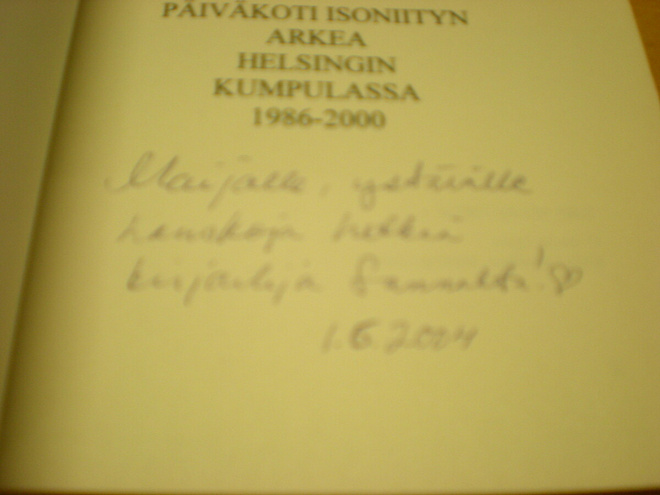 PÄIVÄKOTI ISONIITYN
ARKEA
HELSINGIN
KUMPULASSA
1986-2000
Maijalle, ystävälle
hauskoja hetkiä
kirjailija Sannalta! ♡
1.6.2004